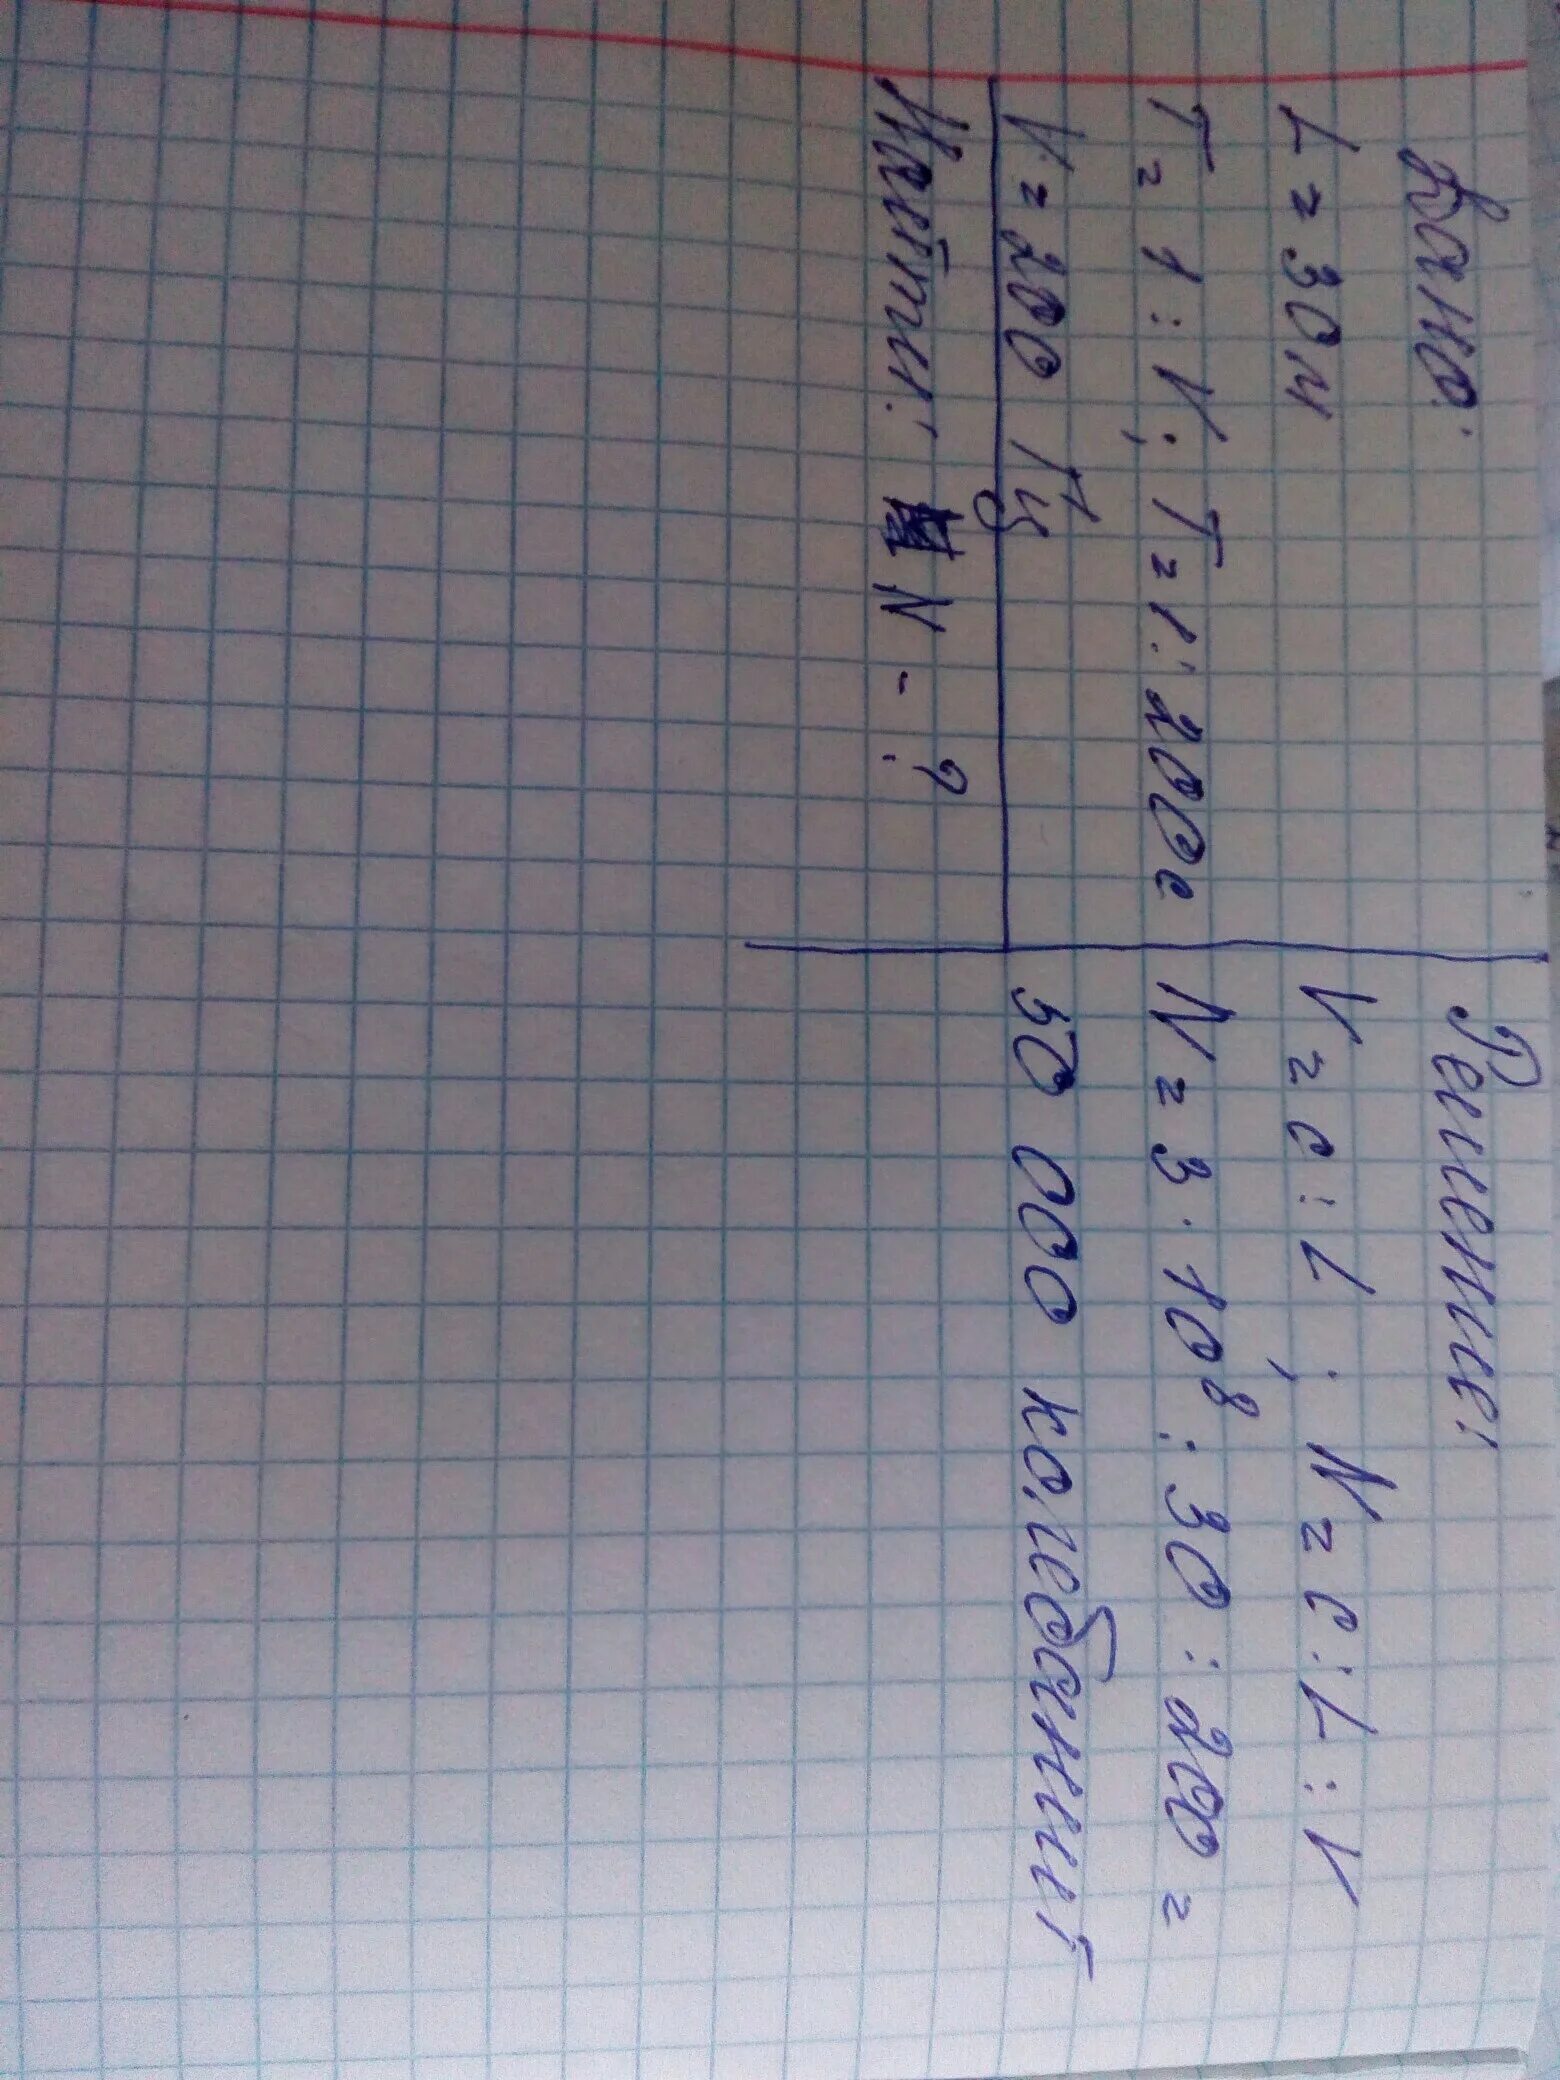 Дано:
L = 30 м
T = 1 : V; T = 1 : 200 с
V = 200 Гц
Найти: N - ?
Решение:
V = c : L ; N = c : L : V
N = 3 · 10⁸ : 30 : 200 =
50 000 колебаний